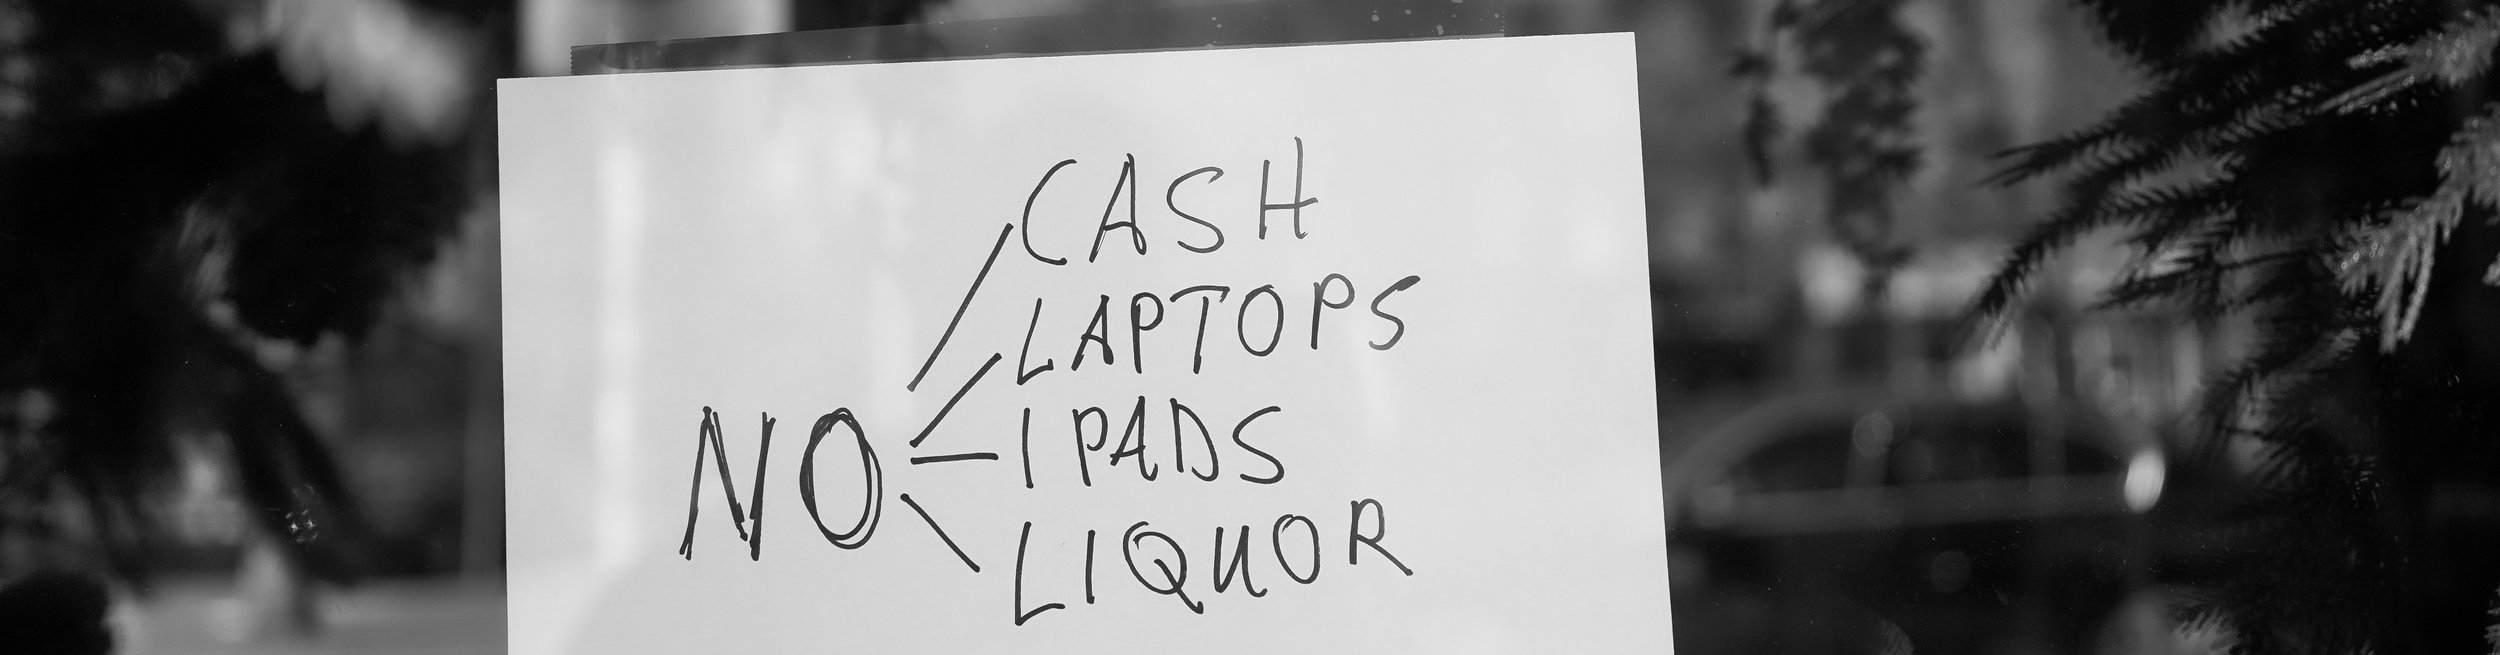 CASH
LAPTOPS
NO I PADS
LIQUOR